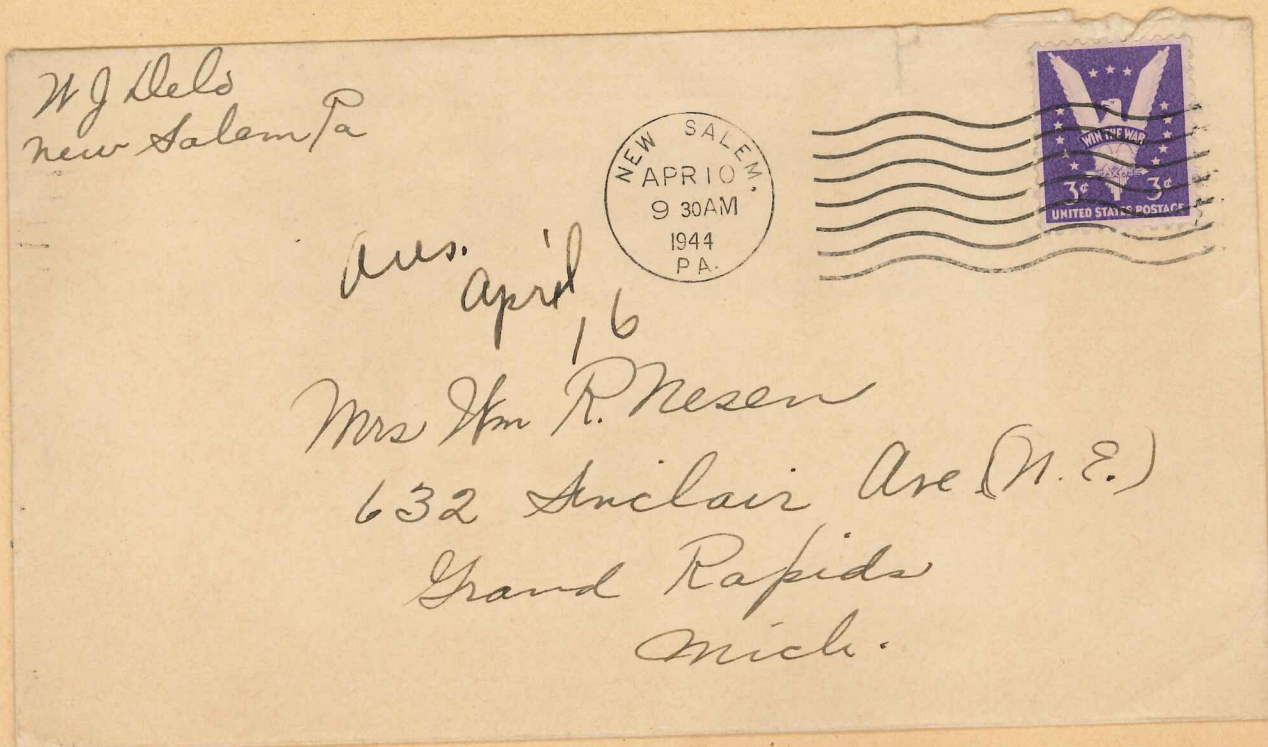 W J Delo
New Salem Pa
NEW SALEM.
APR 10
9 30AM
1944
PA.
WIN THE WAR
3¢ 3¢
UNITED STATES POSTAGE
Ans.
April
16
Mrs Wm R. Nesen
632 Sinclair Ave. (N. E.)
Grand Rapids
Mich.